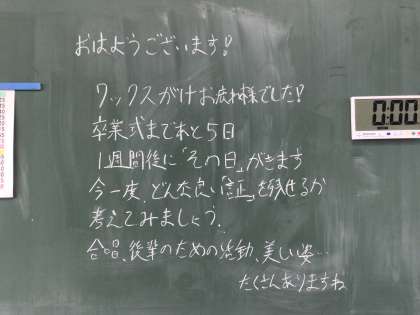 おはようございます!
ワックスがけお疲れ様でした!
卒業式まであと5日
1週間後に「その日」がきます
今一度、どんな良い「証」を残せるか
考えてみましょう。
合唱、後輩のための活動、美しい姿…
たくさんありますね
0:00